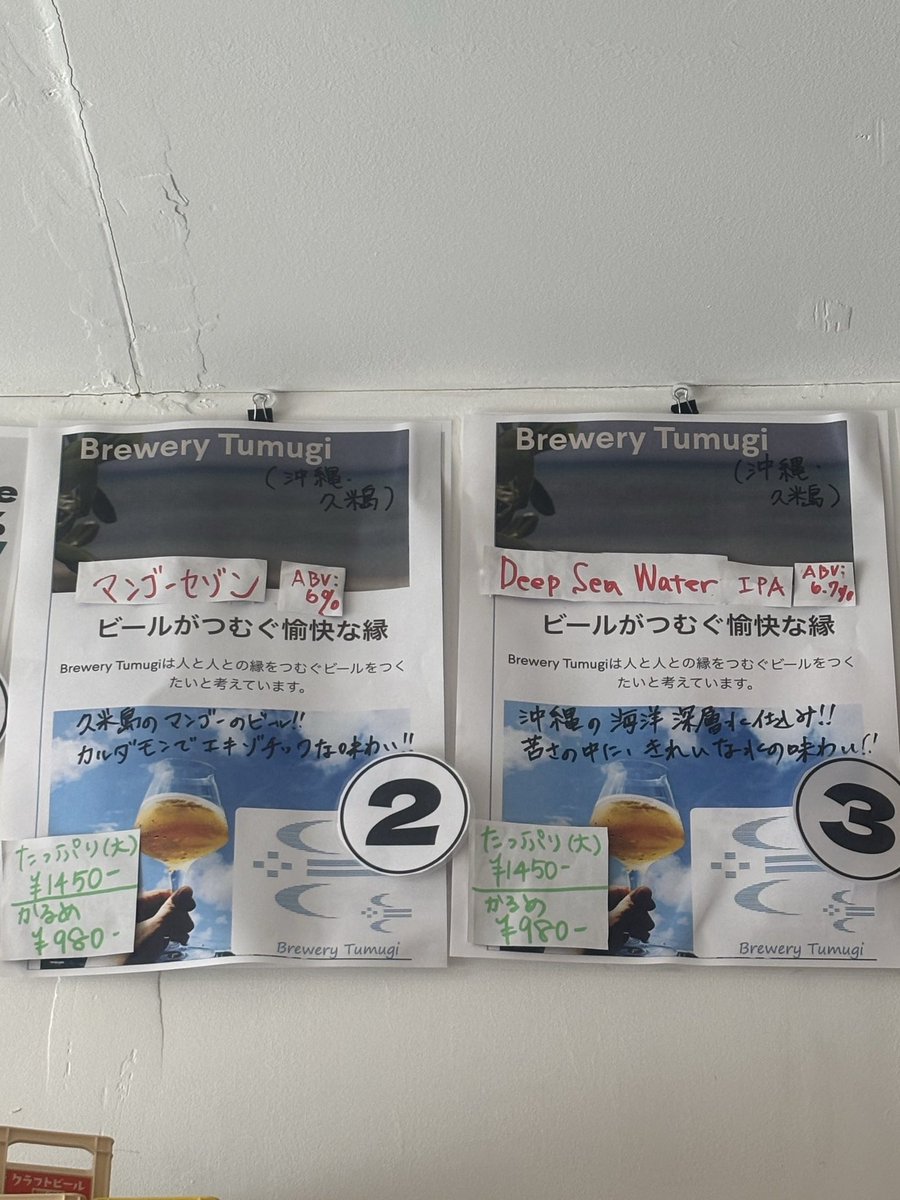 Brewery Tumugi
(沖縄・
久米島)
マンゴーセゾン
ABV:
6%
ビールがつむぐ愉快な縁
Brewery Tumugiは人と人との縁をつむぐビールをつく
たいと考えています。
久米島のマンゴーのビール!!
カルダモンでエキゾチックな味わい!!
2
たっぷり(大)
¥1450-
かるめ
¥980-
Brewery Tumugi
Brewery Tumugi
(沖縄・
久米島)
Deep Sea Water IPA
ABV:
6.7%
ビールがつむぐ愉快な縁
Brewery Tumugiは人と人との縁をつむぐビールをつく
たいと考えています。
沖縄の海洋深層水仕込み!!
苦さの中に、きれいな水の味わい!!
3
たっぷり(大)
¥1450-
かるめ
¥980-
Brewery Tumugi
クラフトビール